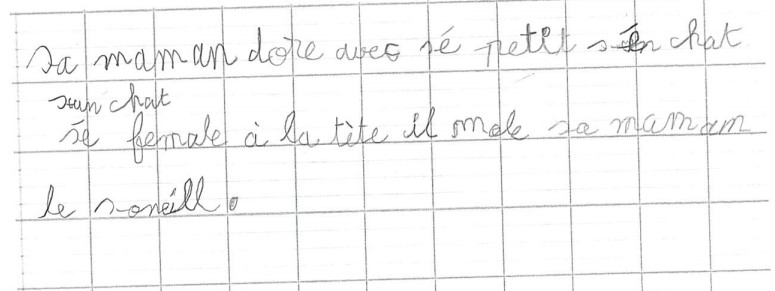 sa maman dore avec sé petit sén chat
sun chat
sé female à la tête il male sa mamam
le soneill.